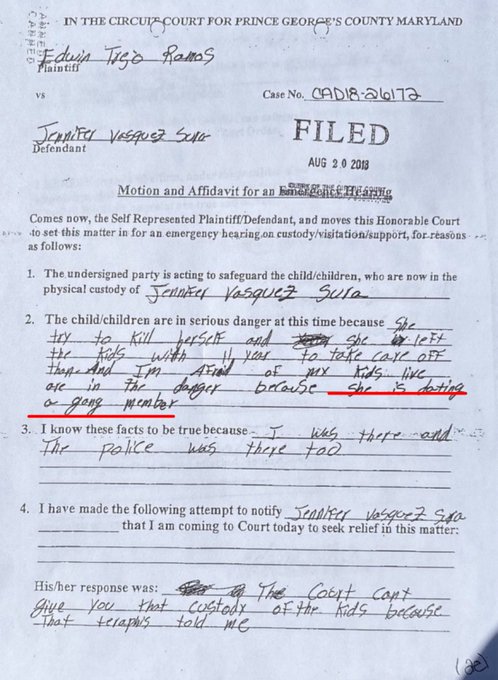 IN THE CIRCUIT COURT FOR PRINCE GEORGE'S COUNTY MARYLAND
Edwin Trejo Ramos
Plaintiff
vs
Case No. CAD18-26172
Jennifer Vasquez Sura
Defendant
FILED
AUG 20 2018
Motion and Affidavit for an Emergency Hearing
Comes now, the Self Represented Plaintiff/Defendant, and moves this Honorable Court
to set this matter in for an emergency hearing on custody/visitation/support, for reasons
as follows:
1. The undersigned party is acting to safeguard the child/children, who are now in the
physical custody of Jennifer Vasquez Sura
2. The child/children are in serious danger at this time because She
try to kill herself and she left
the kids with 11 year to take care off
them And I'm Afraid of my kids live
are in the danger because she is dating
a gang member
3. I know these facts to be true because I was there and
The police was there too
4. I have made the following attempt to notify Jennifer Vasquez Sura
that I am coming to Court today to seek relief in this matter:
His/her response was: The Court cant
give you that custody of the kids because
That teraphis told me
(ae)